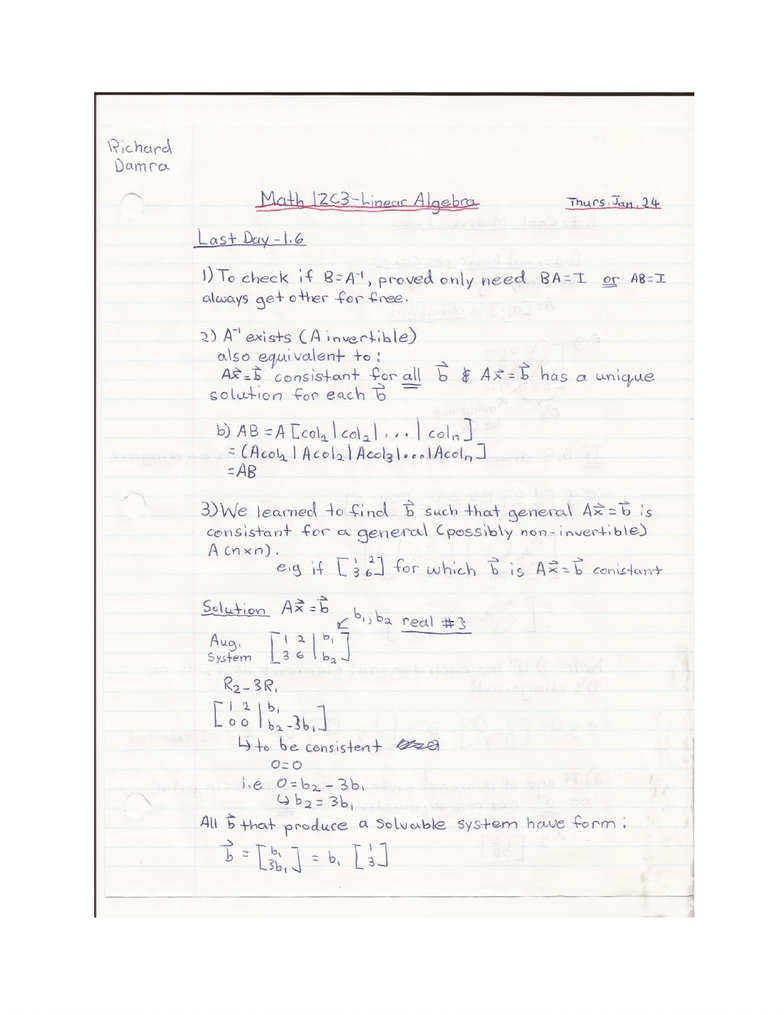 Richard
Damra
Math 1ZC3-Linear Algebra
Thurs. Jan. 24
Last Day - 1.6
1) To check if B=A⁻¹, proved only need BA=I or AB=I
always get other for free.
2) A⁻¹ exists (A invertible)
also equivalent to:
Ax⃗=b⃗ consistant for all b⃗ & Ax⃗=b⃗ has a unique
solution for each b⃗
b) AB = A [col₁ | col₂ | ... | colₙ]
= (Acol₁ | Acol₂ | Acol₃ | ... | Acolₙ]
=AB
3) We learned to find b⃗ such that general Ax⃗=b⃗ is
consistant for a general (possibly non-invertible)
A (n×n).
e.g if [1 2; 3 6] for which b⃗ is Ax⃗=b⃗ conistant
Solution Ax⃗=b⃗
↙ b₁, b₂ real #3
Aug. System [1 2 | b₁; 3 6 | b₂]
R₂-3R₁
[1 2 | b₁; 0 0 | b₂-3b₁]
↳ to be consistent
0=0
i.e 0=b₂ - 3b₁
↳ b₂ = 3b₁
All b⃗ that produce a solvable system have form:
b⃗ = [b₁; 3b₁] = b₁ [1; 3]